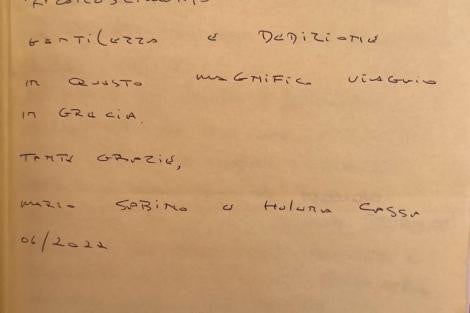 GENTILEZZA E DEDIZIONE
IN QUESTO MAGNIFICO VIAGGIO
IN GRECIA.
TANTE GRAZIE,
MARIO SABINO E
06/2022